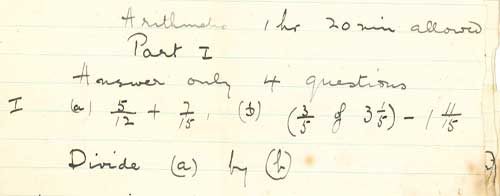 Arithmetic 1 hr 20 min allowed
Part I
Answer only 4 questions
I (a) 5/12 + 7/15, (b) (3/5 of 3 1/5) - 1 11/15
Divide (a) by (b)